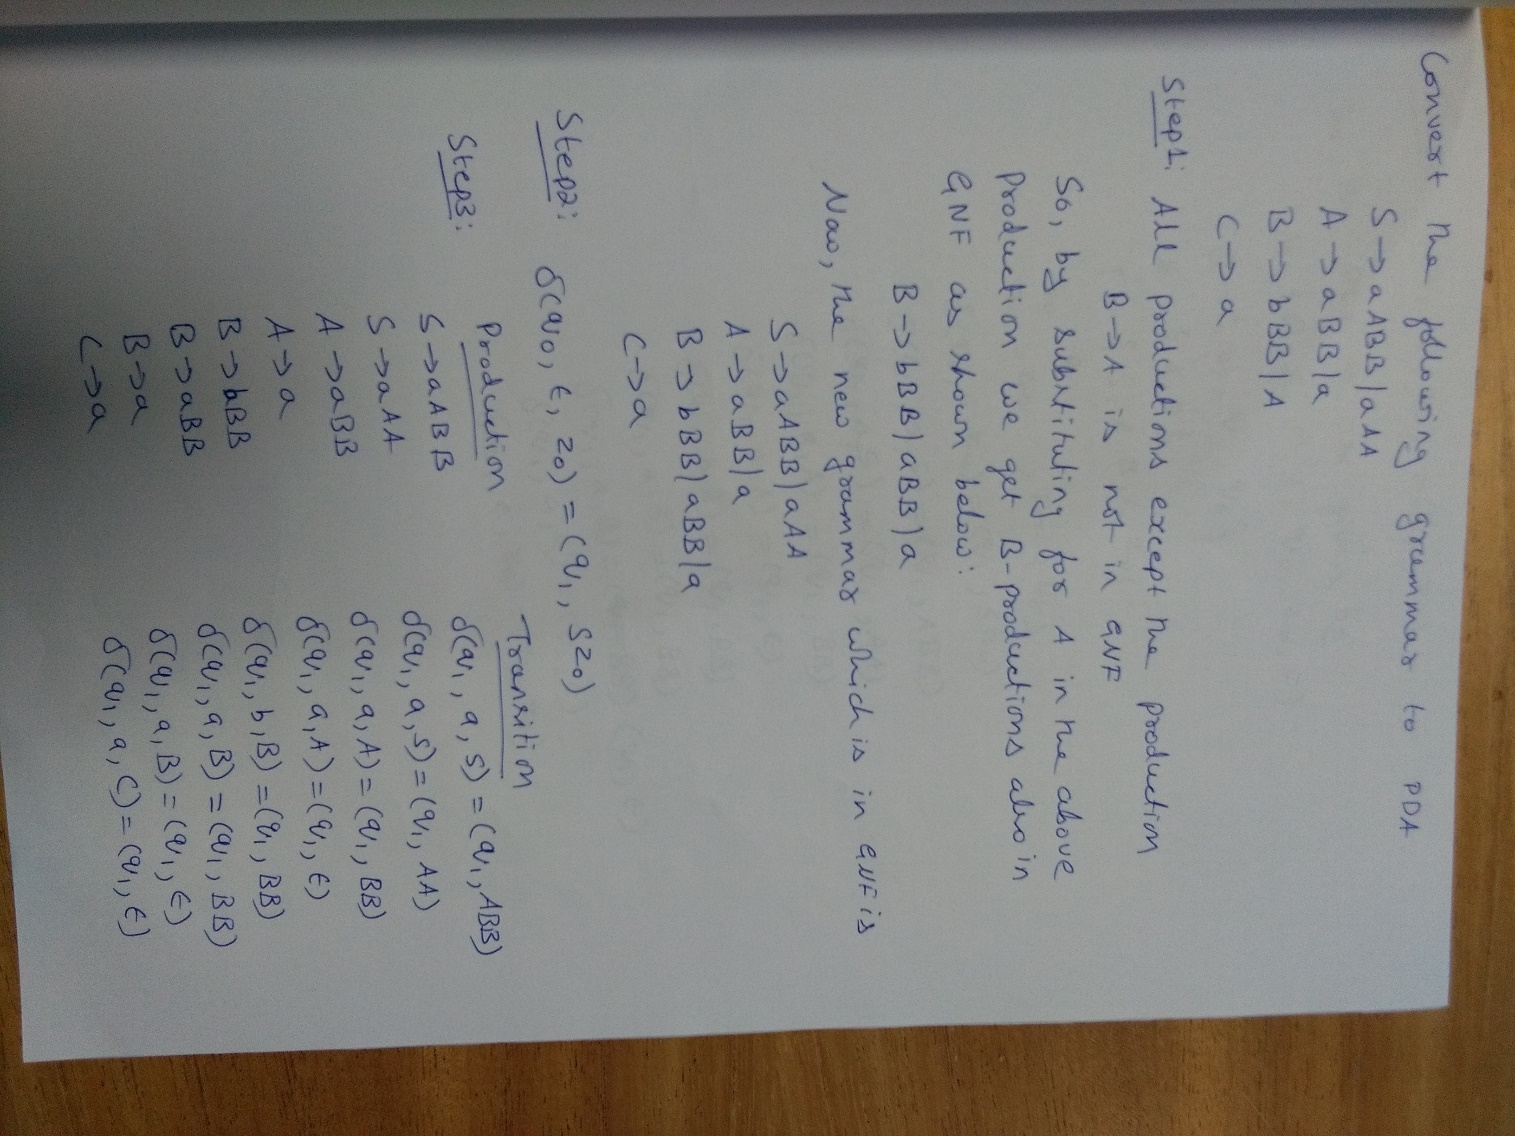 Convert the following grammar to PDA
S → aABB | aAA
A → aBB | a
B → bBB | A
C → a
Step1: All productions except the production
B → A is not in GNF
So, by substituting for A in the above
production we get B-productions also in
GNF as shown below:
B → bBB | aBB | a
Now, the new grammar which is in GNF is
S → aABB | aAA
A → aBB | a
B → bBB | aBB | a
C → a
Step2: δ(q0, ε, z0) = (q1, Sz0)
Step3: Production Transition
S → aABB δ(q1, a, S) = (q1, ABB)
S → aAA δ(q1, a, S) = (q1, AA)
A → aBB δ(q1, a, A) = (q1, BB)
A → a δ(q1, a, A) = (q1, ε)
B → bBB δ(q1, b, B) = (q1, BB)
B → aBB δ(q1, a, B) = (q1, BB)
B → a δ(q1, a, B) = (q1, ε)
C → a δ(q1, a, C) = (q1, ε)